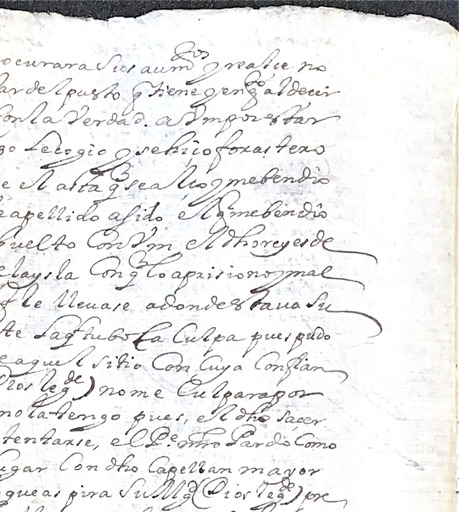 ocurara sus aumos y realce no
ar del pusto q tiene y en qto al decir
con la Verdad. a
go le cogio y se hiço forastero
e el asta q se alço y me bendio
e apellido a sido el q me bendio
buelto con Vm el dho rey es de
e la ysla con q lo aprisiono y mal
q le llevase a donde estava su
te la q tubo la Culpa pues pudo
e aquel sitio Con Cuya Confian
Dios legde) no me Culpara por
no la tengo pues, el dho sacer
tentarse, el Pe mro Pardo Como
ugar Con dho Capellan mayor
que aspira Su Mgd (Dios legde) pre